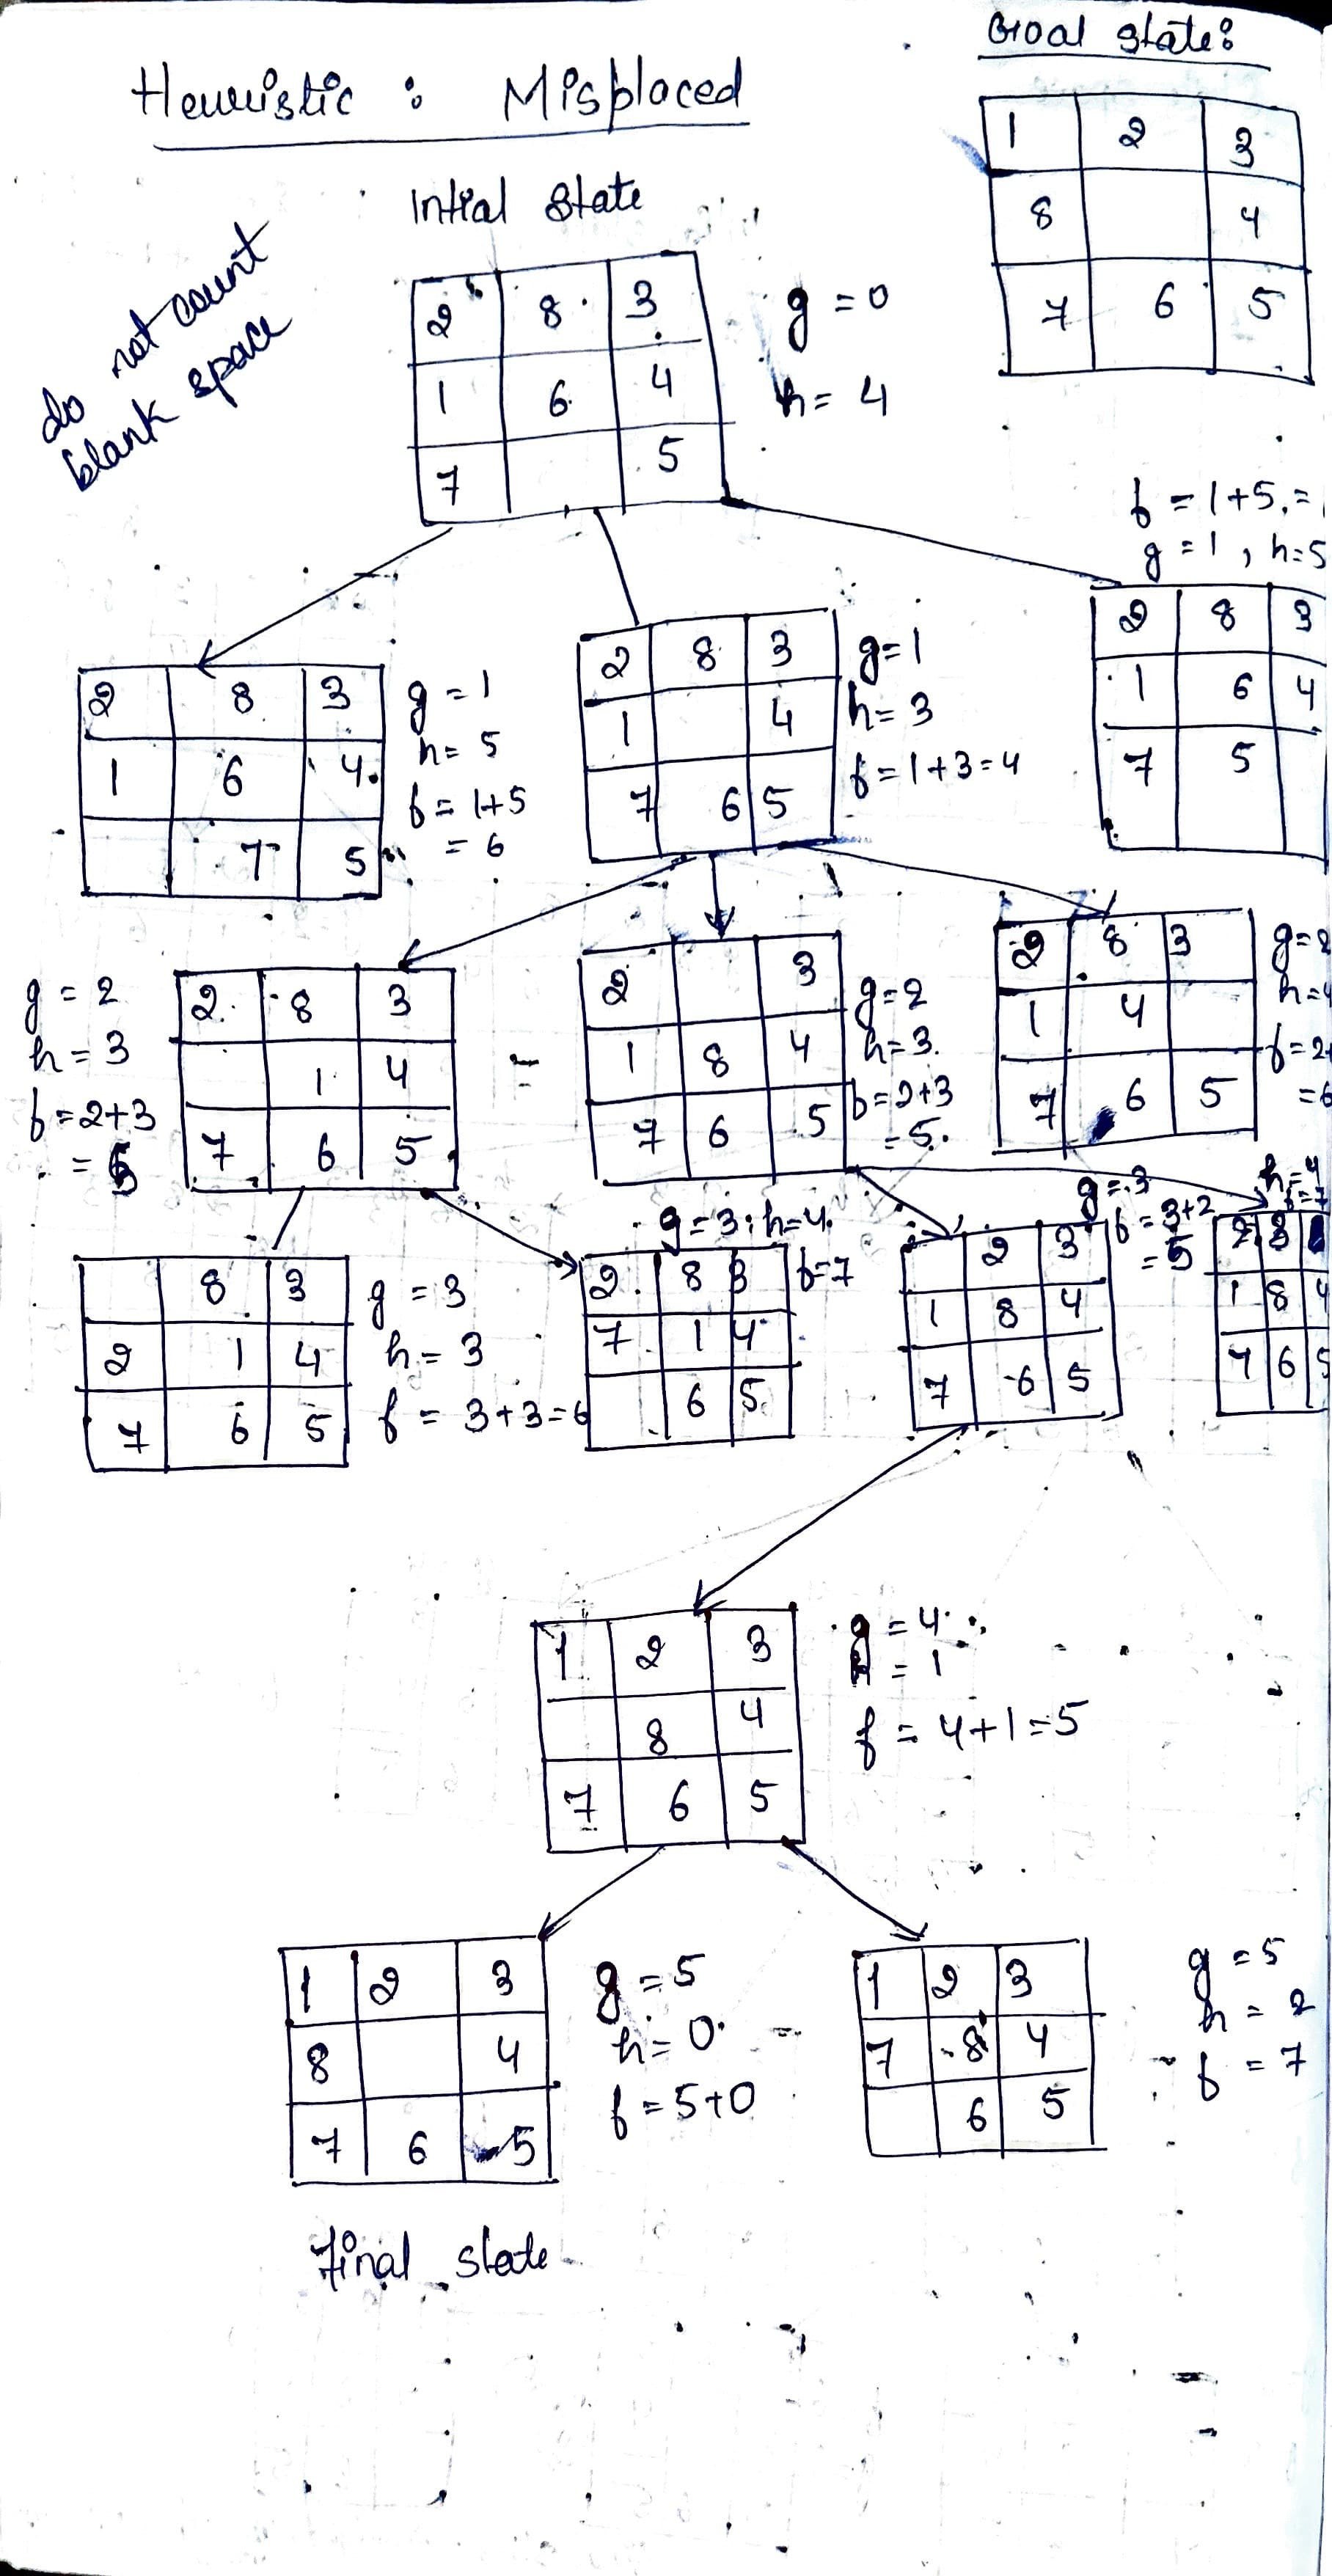 Goal state:
Heuristic : Misplaced
1 2 3
8 4
7 6 5
Intial State
do not count
blank space
2 8 3
1 6 4
7 5
g = 0
h = 4
f = 1+5 =
g = 1, h = 5
2 8 3
1 6 4
7 5
g = 1
h = 5
f = 1+5
= 6
2 8 3
1 4
7 6 5
g = 1
h = 3
f = 1+3 = 4
2 8 3
1 6 4
7 5
g = 2
h = 3
f = 2+3
= 5
2 8 3
1 4
7 6 5
2 3
1 8 4
7 6 5
g = 2
h = 3
f = 2+3
= 5
2 8 3
1 4
7 6 5
g = 2
h = 4
f = 2+
= 6
8 3
2 1 4
7 6 5
g = 3
h = 3
f = 3+3 = 6
g = 3; h = 4
f = 7
2 8 3
7 1 4
6 5
g = 3
f = 3+2
= 5
2 3
1 8 4
7 6 5
h = 4
f = 7
2 3
1 8 4
7 6 5
1 2 3
8 4
7 6 5
g = 4
h = 1
f = 4+1 = 5
1 2 3
8 4
7 6 5
g = 5
h = 0
f = 5+0
1 2 3
7 8 4
6 5
g = 5
h = 2
f = 7
Final state